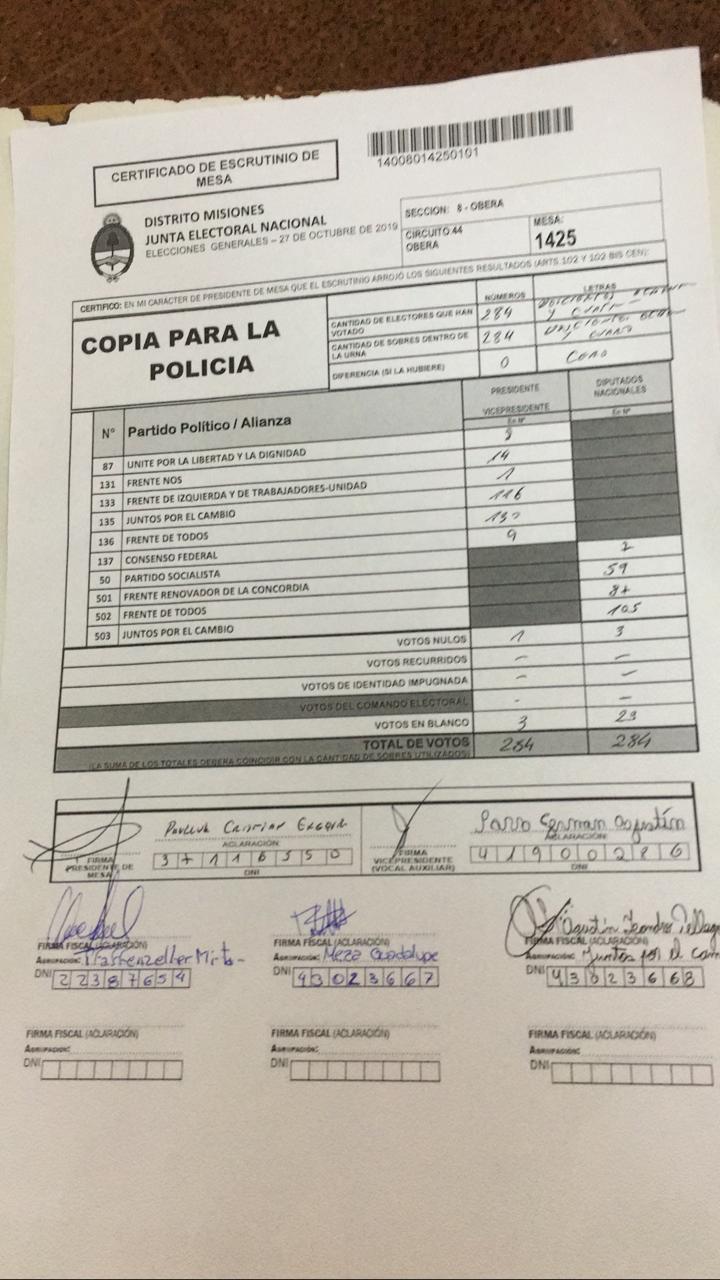 CERTIFICADO DE ESCRUTINIO DE
MESA
14008014250101
DISTRITO MISIONES
JUNTA ELECTORAL NACIONAL
ELECCIONES GENERALES – 27 DE OCTUBRE DE 2019
SECCION: 8 - OBERA
CIRCUITO 44
OBERA
MESA:
1425
CERTIFICO: EN MI CARÁCTER DE PRESIDENTE DE MESA QUE EL ESCRUTINIO ARROJÓ LOS SIGUIENTES RESULTADOS (ARTS. 102 Y 102 BIS CEN):
COPIA PARA LA
POLICIA
NÚMEROS LETRAS
CANTIDAD DE ELECTORES QUE HAN VOTADO 284
CANTIDAD DE SOBRES DENTRO DE LA URNA 284
DIFERENCIA (SI LA HUBIERE) 0 CERO
N° Partido Político / Alianza PRESIDENTE VICEPRESIDENTE En N° DIPUTADOS NACIONALES En N°
87 UNITE POR LA LIBERTAD Y LA DIGNIDAD
131 FRENTE NOS 14
133 FRENTE DE IZQUIERDA Y DE TRABAJADORES-UNIDAD 1
135 JUNTOS POR EL CAMBIO 116
136 FRENTE DE TODOS
137 CONSENSO FEDERAL 9
50 PARTIDO SOCIALISTA 2
501 FRENTE RENOVADOR DE LA CONCORDIA 59
502 FRENTE DE TODOS 87
503 JUNTOS POR EL CAMBIO 105
VOTOS NULOS 1 3
VOTOS RECURRIDOS – –
VOTOS DE IDENTIDAD IMPUGNADA – –
VOTOS DEL COMANDO ELECTORAL - –
VOTOS EN BLANCO 3 23
TOTAL DE VOTOS 284 284
(LA SUMA DE LOS TOTALES DEBERA COINCIDIR CON LA CANTIDAD DE SOBRES UTILIZADOS)
Cristian Sarro German Agustín
ACLARACIÓN ACLARACIÓN
FIRMA PRESIDENTE DE MESA 37116550 DNI
FIRMA VICEPRESIDENTE (VOCAL AUXILIAR) 41900286 DNI
FIRMA FISCAL (ACLARACIÓN) FIRMA FISCAL (ACLARACIÓN) Agustín FIRMA FISCAL (ACLARACIÓN)
AGRUPACION: AGRUPACION: Meza Guadalupe AGRUPACION: Juntos por el cam
DNI 22387654 DNI 43023667 DNI 43823668
FIRMA FISCAL (ACLARACIÓN) FIRMA FISCAL (ACLARACIÓN) FIRMA FISCAL (ACLARACIÓN)
AGRUPACION: AGRUPACION: AGRUPACION:
DNI DNI DNI